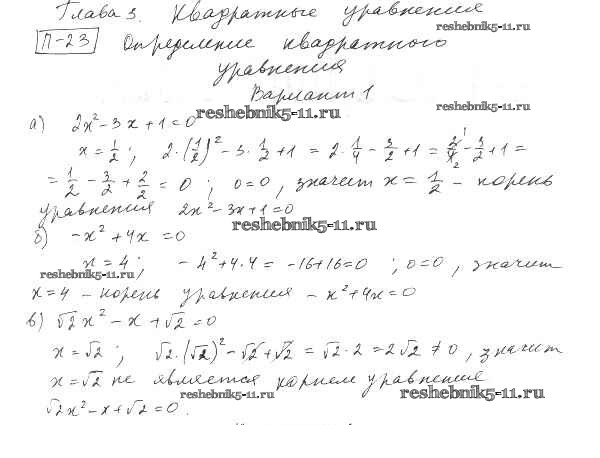 Глава 3. Квадратные уравнения
reshebnik5-11.ru
П-23 Определение квадратного
уравнения
Вариант 1
reshebnik5-11.ru
reshebnik5-11.ru
а) 2x² - 3x + 1 = 0
x = 1/2; 2·(1/2)² - 3·1/2 + 1 = 2·1/4 - 3/2 + 1 = 2/4 - 3/2 + 1 =
= 1/2 - 3/2 + 2/2 = 0; 0=0, значит x = 1/2 - корень
уравнения 2x² - 3x + 1 = 0
reshebnik5-11.ru
б) -x² + 4x = 0
x = 4; -4² + 4·4 = -16 + 16 = 0; 0=0, значит
reshebnik5-11.ru
x = 4 - корень уравнения -x² + 4x = 0
в) √2x² - x + √2 = 0
x = √2; √2·(√2)² - √2 + √2 = √2·2 = 2√2 ≠ 0, значит
x = √2 не является корнем уравнения
reshebnik5-11.ru
reshebnik5-11.ru
√2x² - x + √2 = 0.